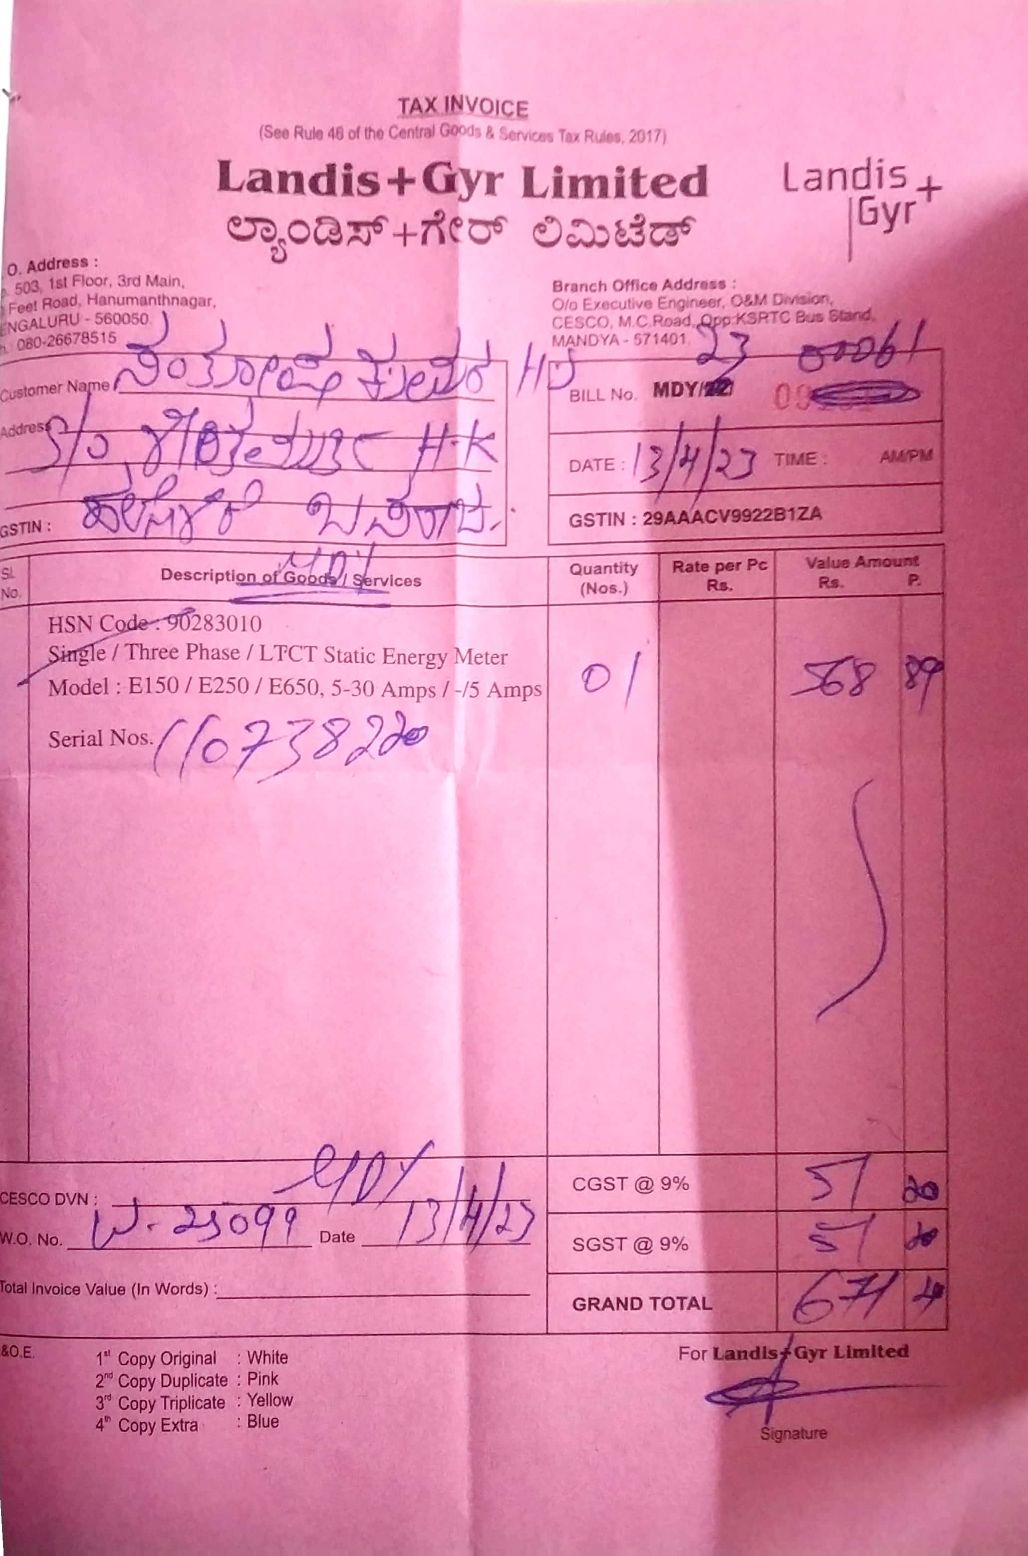 TAX INVOICE
(See Rule 46 of the Central Goods & Services Tax Rules, 2017)
Landis+Gyr Limited
ಲ್ಯಾಂಡಿಸ್+ಗೇರ್ ಲಿಮಿಟೆಡ್
Landis
Gyr+
O. Address :
503, 1st Floor, 3rd Main,
Feet Road, Hanumanthnagar,
ENGALURU - 560050.
080-26678515
Branch Office Address :
O/o Executive Engineer, O&M Division,
CESCO, M.C.Road, Opp:KSRTC Bus Stand,
MANDYA - 571401.
Customer Name ಸಂತೋಷ ಕುಮಾರ HJ
Address S/o H-K
GSTIN :
BILL No. MDY/ 23 00061
DATE : 13/4/23 TIME : AM/PM
GSTIN : 29AAACV9922B1ZA
Sl. No.
Description of Goods / Services
Quantity (Nos.)
Rate per Pc Rs.
Value Amount Rs. P.
MDY
HSN Code : 90283010
Single / Three Phase / LTCT Static Energy Meter
Model : E150 / E250 / E650, 5-30 Amps / -/5 Amps 01 568 89
Serial Nos. 110738220
CESCO DVN : MDY
W.O. No. 25099 Date 13/4/23
Total Invoice Value (In Words) :
CGST @ 9% 51 20
SGST @ 9% 51 20
GRAND TOTAL 671
&O.E.
1st Copy Original : White
2nd Copy Duplicate : Pink
3rd Copy Triplicate : Yellow
4th Copy Extra : Blue
For Landis+Gyr Limited
Signature